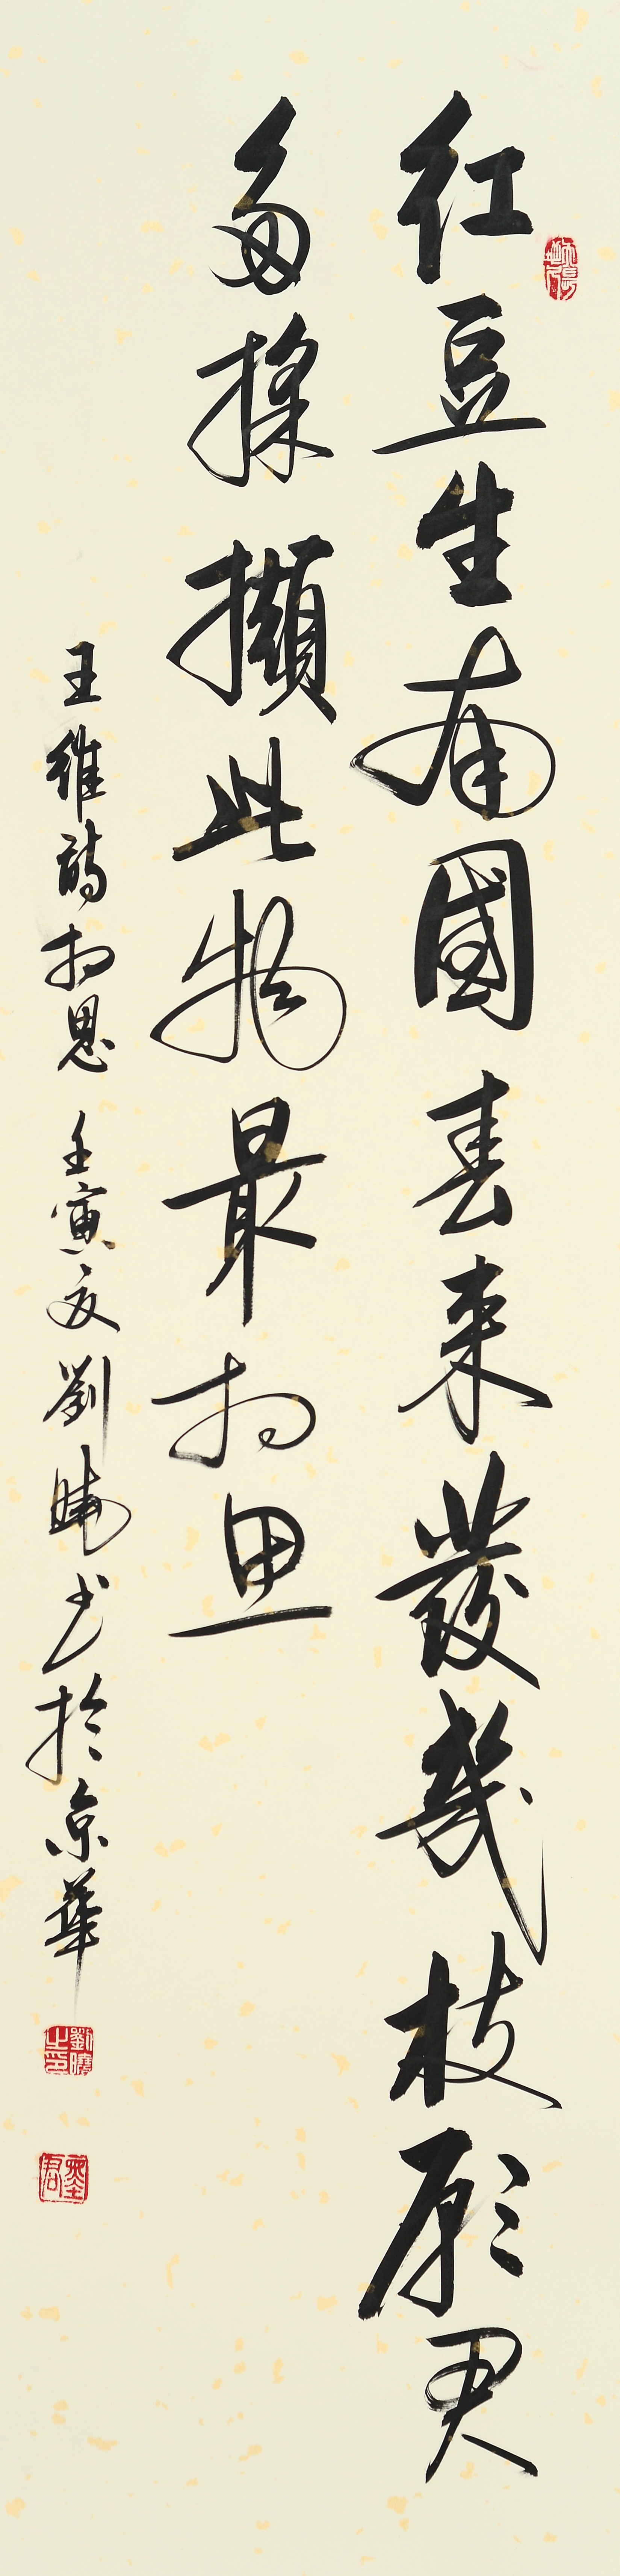 紅豆生南國春來發幾枝願君
多採擷此物最相思
王維詩相思 壬寅夏劉曉書於京華
劉曉之印
墨君